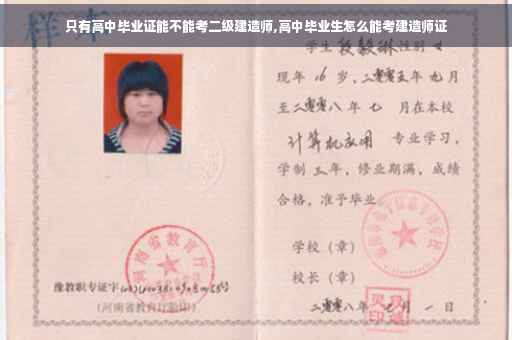 只有高中毕业证能不能考二级建造师,高中毕业生怎么能考建造师证
学生段毅琳性别女
现年16岁,二零零五年九月
至二零零八年七月在本校
计算机应用 专业学习,
学制三年,修业期满,成绩
合格,准予毕业
学校(章)
校长(章)
二零零八年七月一日
河南省教育厅
豫教职专证字
(河南省教育厅验印)